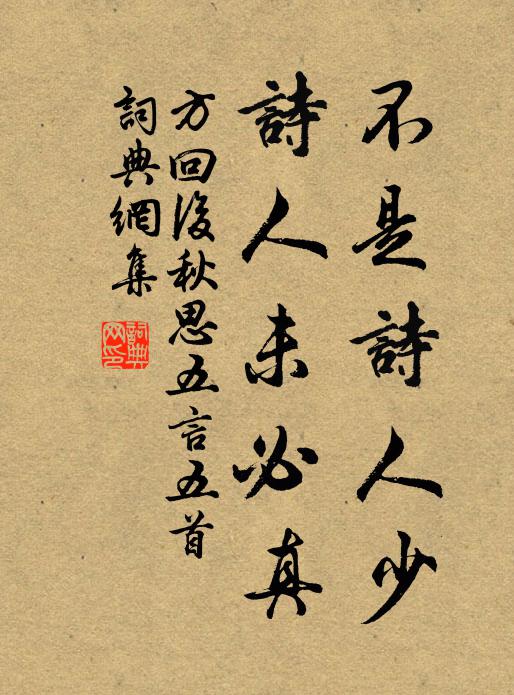 不是詩人少
詩人未必真
方回後秋思五言五首
詞典網集
詞典网印